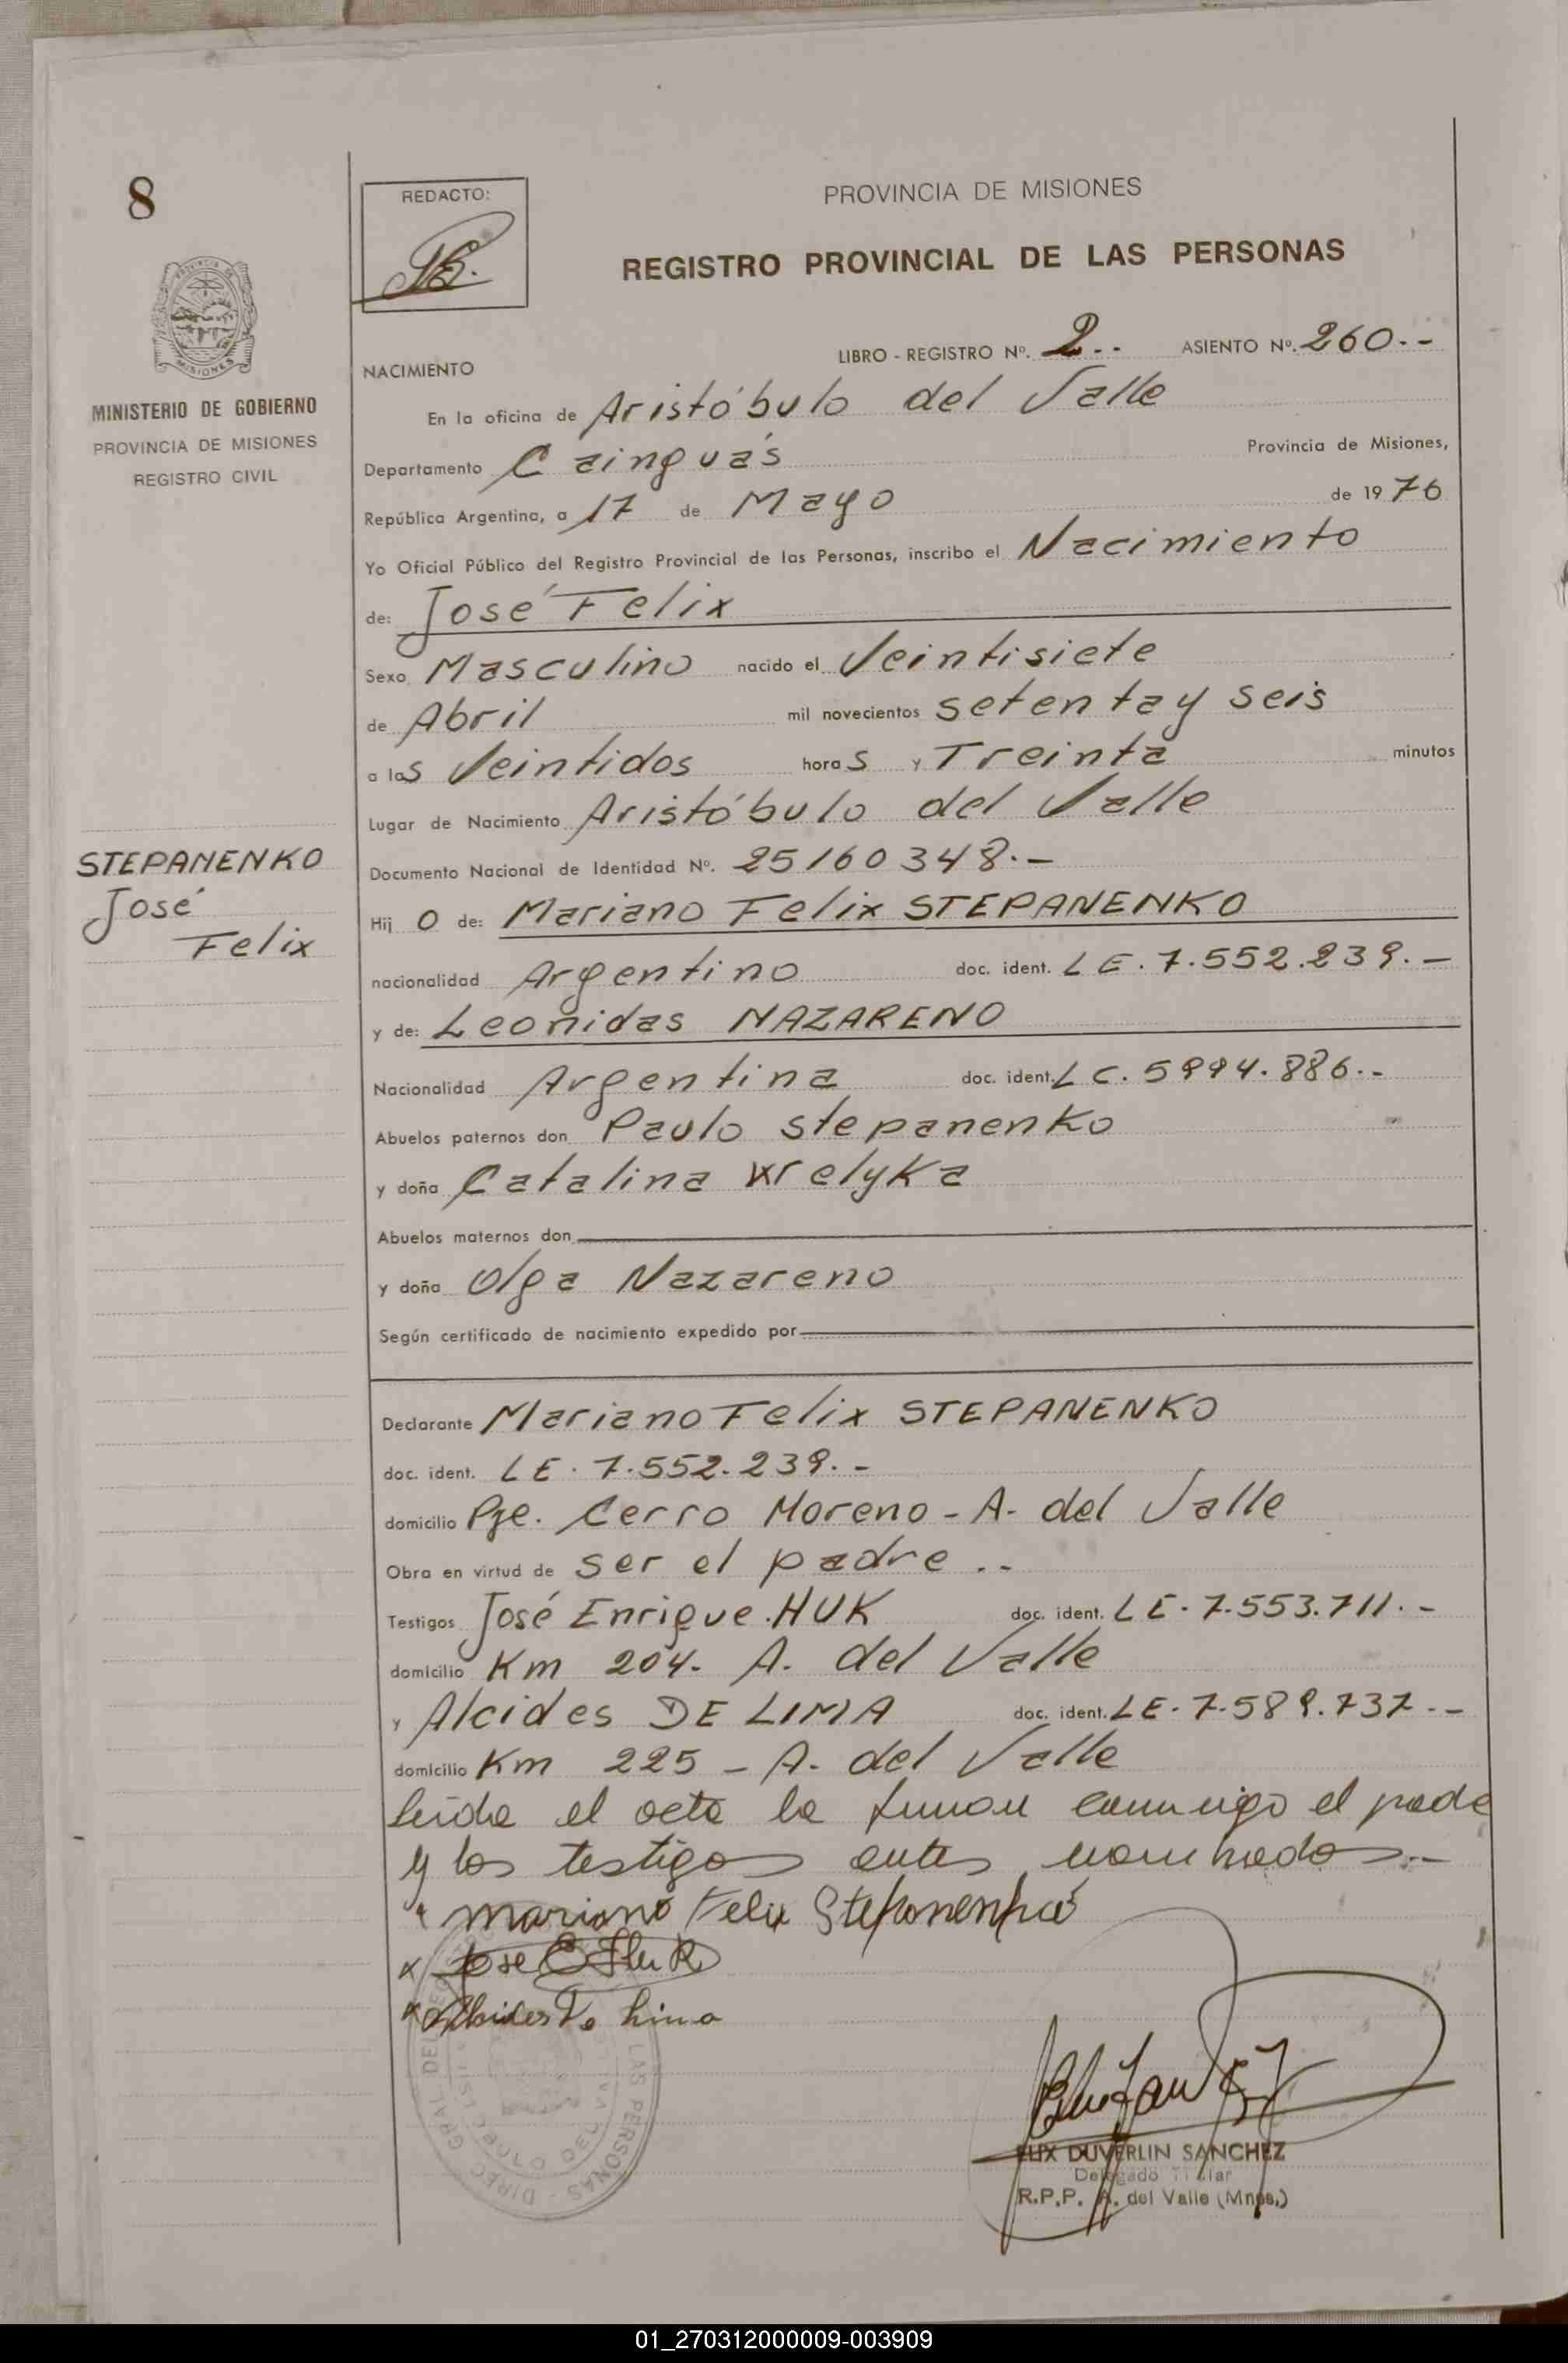 8
REDACTO:
PROVINCIA DE MISIONES
REGISTRO PROVINCIAL DE LAS PERSONAS
PROVINCIA DE
MISIONES
MINISTERIO DE GOBIERNO
PROVINCIA DE MISIONES
REGISTRO CIVIL
LIBRO - REGISTRO Nº. 2.. ASIENTO Nº. 260.-
NACIMIENTO
En la oficina de Aristóbulo del Valle
Departamento Cainguás Provincia de Misiones,
República Argentina, a 17 de Mayo de 1976
Yo Oficial Público del Registro Provincial de las Personas, inscribo el Nacimiento
de: José Felix
Sexo Masculino nacido el Veintisiete
de Abril mil novecientos setenta y seis
a las Veintidos horas y Treinta minutos
Lugar de Nacimiento Aristóbulo del Valle
Documento Nacional de Identidad Nº. 25160348.-
STEPANENKO
José
Felix
Hijo de: Mariano Felix STEPANENKO
nacionalidad Argentino doc. ident. LE. 7.552.239.-
y de: Leonidas NAZARENO
Nacionalidad Argentina doc. ident. LC. 5994.886.-
Abuelos paternos don Paulo Stepanenko
y doña Catalina Welyka
Abuelos maternos don
y doña Olga Nazareno
Según certificado de nacimiento expedido por
Declarante Mariano Felix STEPANENKO
doc. ident. LE. 7.552.239.-
domicilio Pje. Cerro Moreno - A. del Valle
Obra en virtud de ser el padre..
Testigos José Enrique HUK doc. ident. LE. 7.553.711.-
domicilio Km 204. A. del Valle
y Alcides DE LIMA doc. ident. LE. 7.589.737.-
domicilio Km 225 - A. del Valle
leída el acta la firman conmigo el padre
y los testigos antes nombrados.-
Mariano Felix Stepanenko
x Jose E Huk
x Alcides De Lima
LAS PERSONAS - DIREC. GRAL DEL REGISTRO
FELIX DUVERLIN SANCHEZ
Delegado Titular
R.P.P. A. del Valle (Mnes.)
01_270312000009-003909